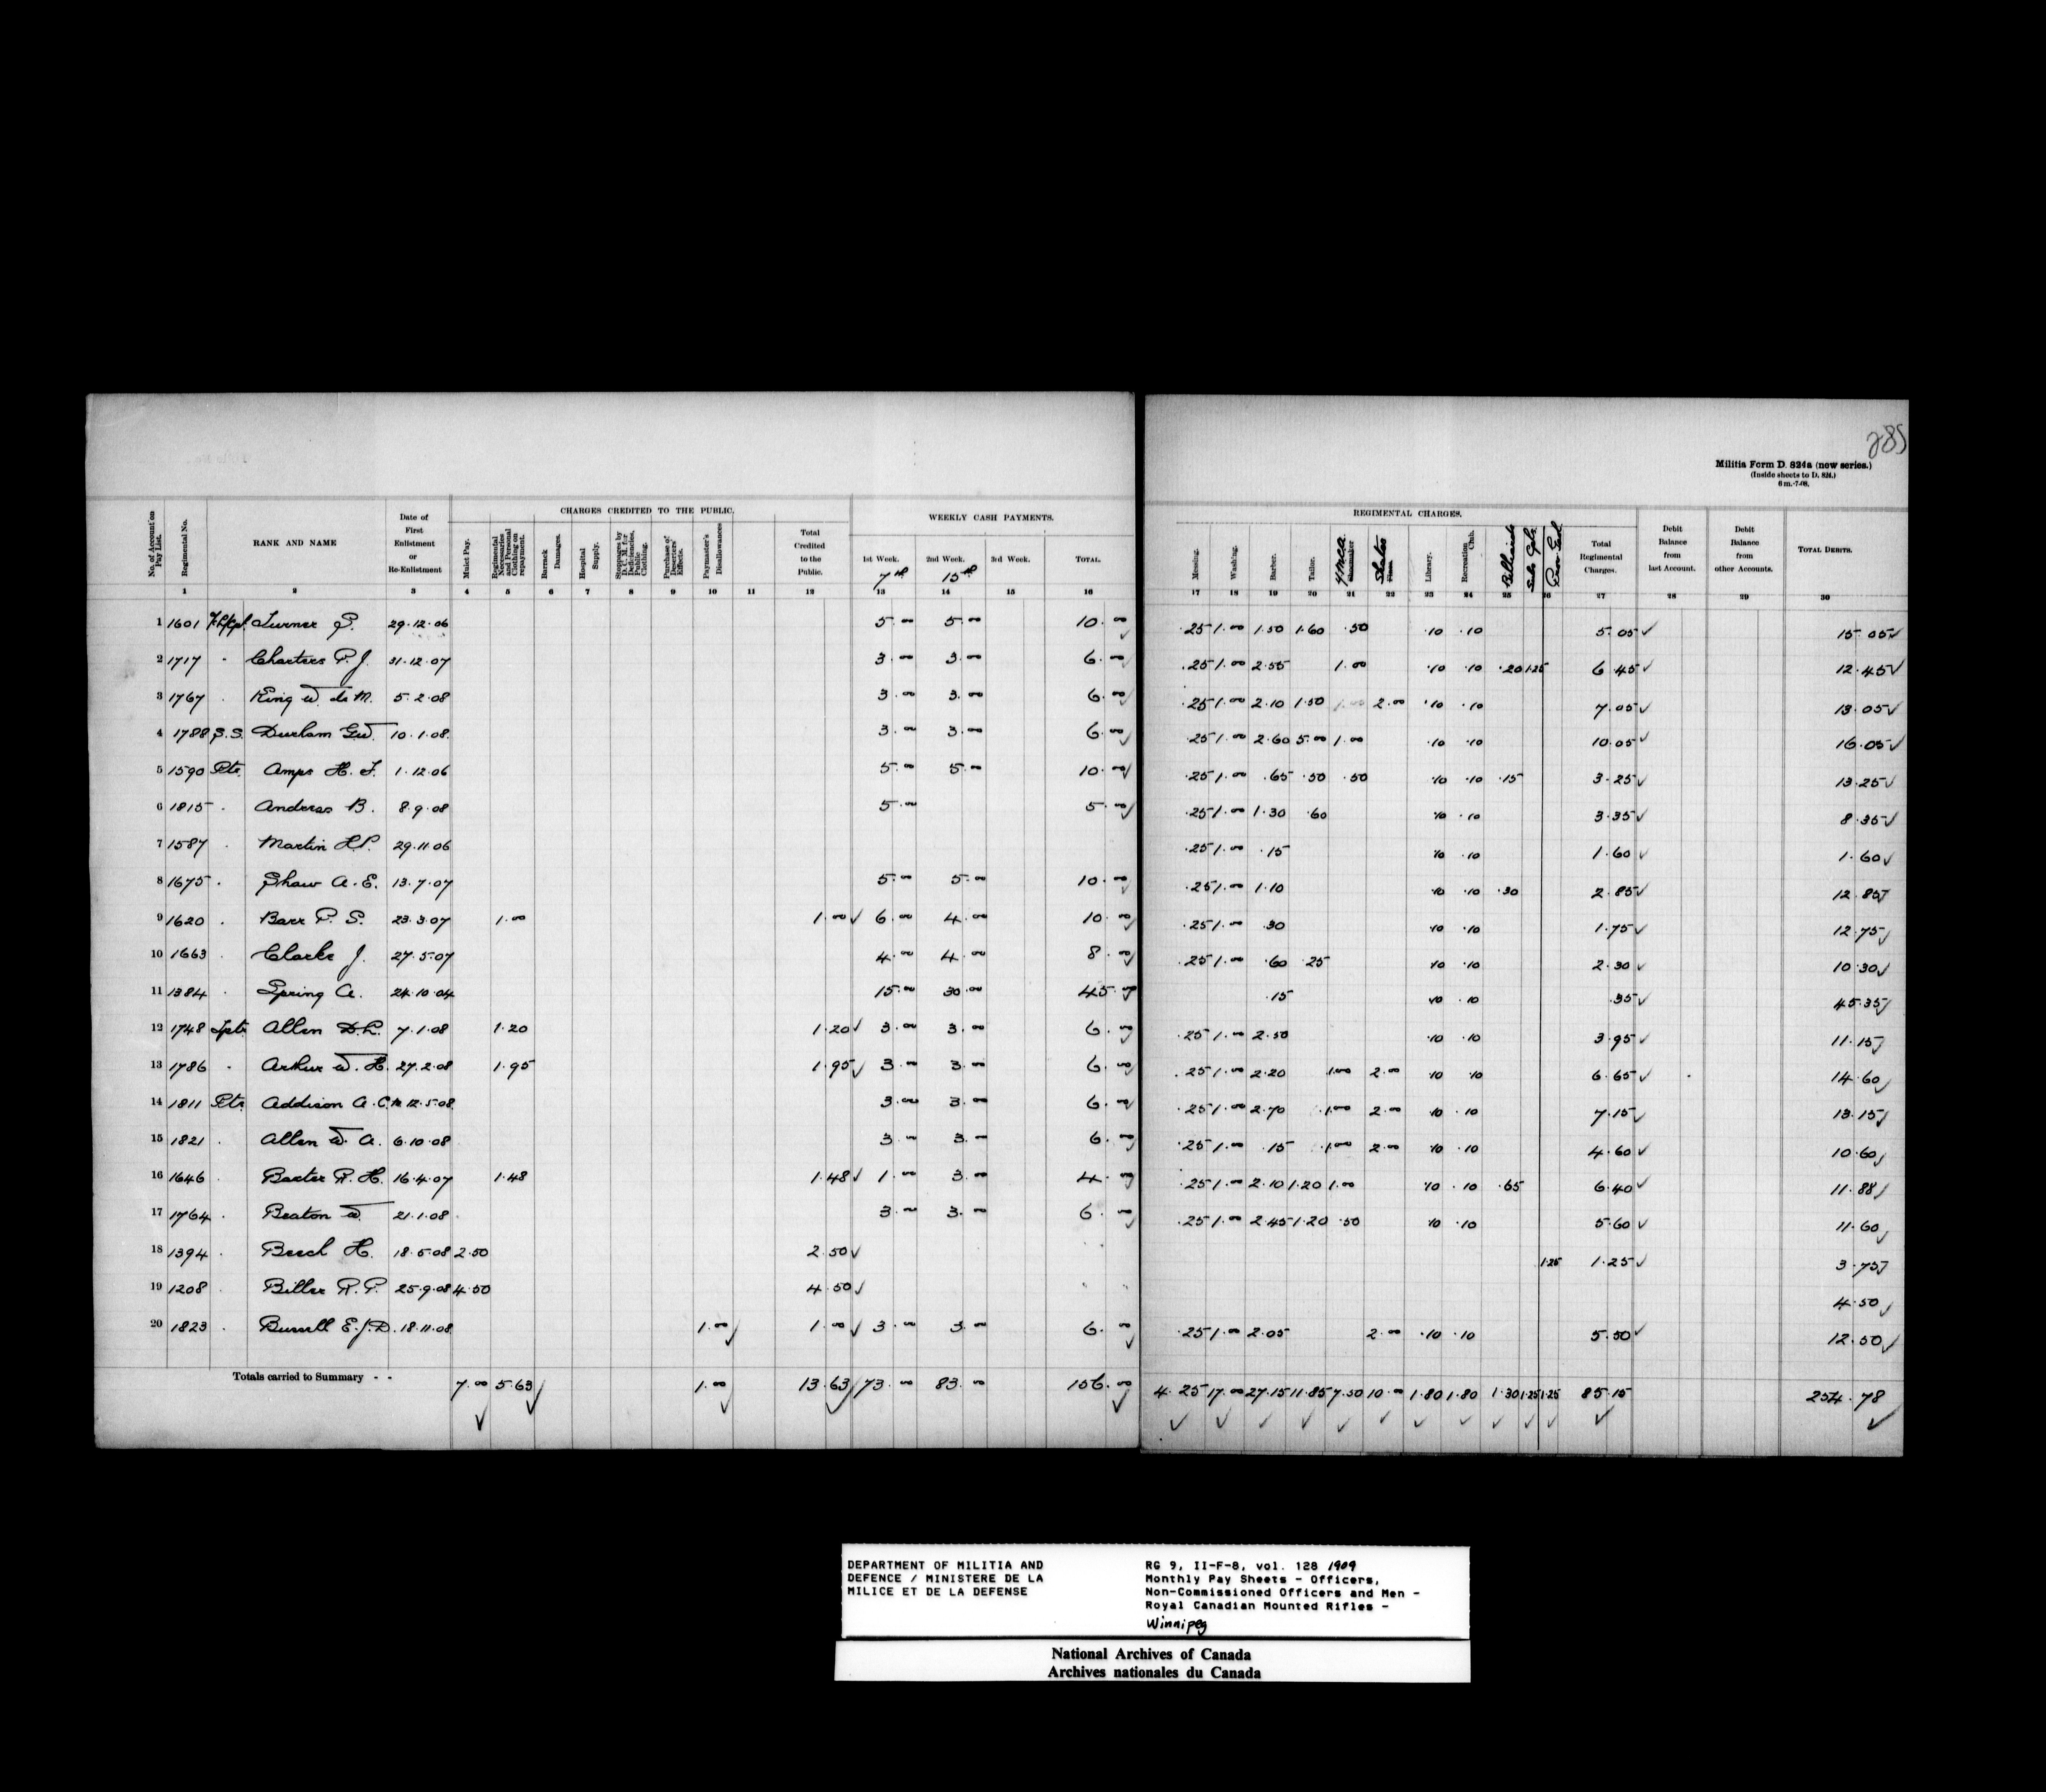 285
Militia Form D. 824a (new series.)
(Inside sheets to D. 824.)
6 m.-7-08.
No. of Account on Pay List.
Regimental No.
RANK AND NAME
Date of First Enlistment or Re-Enlistment
CHARGES CREDITED TO THE PUBLIC.
Mulct Pay.
Regimental Necessaries and Personal Clothing on repayment.
Barrack Damages.
Hospital Supply.
Stoppages by D. C. M. for Deficiencies, Public Clothing.
Purchase of Deserters' Effects.
Paymaster's Disallowances
Total Credited to the Public.
WEEKLY CASH PAYMENTS.
1st Week. 7th
2nd Week. 15th
3rd Week.
TOTAL.
REGIMENTAL CHARGES.
Messing.
Washing.
Barber.
Tailor.
YMCA Shoemaker
Skates
Library.
Recreation Club.
Billiards
Total Regimental Charges.
Debit Balance from last Account.
Debit Balance from other Accounts.
TOTAL DEBITS.
1 2 3 4 5 6 7 8 9 10 11 12 13 14 15 16 17 18 19 20 21 22 23 24 25 26 27 28 29 30
1 1601 Turner S. 29.12.06 5.00 5.00 10.00 .25 1.00 1.50 1.60 .50 .10 .10 5.05 15.05
2 1717 " Charters P. J. 31.12.07 3.00 3.00 6.00 .25 1.00 2.55 1.00 .10 .10 .20 1.25 6.45 12.45
3 1767 " King W. de M. 5.2.08 3.00 3.00 6.00 .25 1.00 2.10 1.50 1.00 2.00 .10 .10 7.05 13.05
4 1788 S.S. Durham G.W. 10.1.08. 3.00 3.00 6.00 .25 1.00 2.60 5.00 1.00 .10 .10 10.05 16.05
5 1590 Pte. Amps H. J. 1.12.06 5.00 5.00 10.00 .25 1.00 .65 .50 .50 .10 .10 .15 3.25 13.25
6 1815 " Anderas B. 8.9.08 5.00 5.00 .25 1.00 1.30 .60 .10 .10 3.35 8.35
7 1587 " Martin H.P. 29.11.06 .25 1.00 .15 .10 .10 1.60 1.60
8 1675 " Shaw A. E. 13.7.07 5.00 5.00 10.00 .25 1.00 1.10 .10 .10 .30 2.85 12.85
9 1620 " Barr P. S. 23.3.07 1.00 1.00 6.00 4.00 10.00 .25 1.00 .30 .10 .10 1.75 12.75
10 1663 " Clarke J. 27.5.07 4.00 4.00 8.00 .25 1.00 .60 .25 .10 .10 2.30 10.30
11 1384 " Spring A. 24.10.04 15.00 30.00 45.00 .15 .10 .10 .35 45.35
12 1748 Allen D.L. 7.1.08 1.20 1.20 3.00 3.00 6.00 .25 1.00 2.50 .10 .10 3.95 11.15
13 1786 " Arthur W. H. 27.2.08 1.95 1.95 3.00 3.00 6.00 .25 1.00 2.20 1.00 2.00 .10 .10 6.65 14.60
14 1811 Pte. Addison A. C. 12.5.08 3.00 3.00 6.00 .25 1.00 2.70 1.00 2.00 .10 .10 7.15 13.15
15 1821 " Allen W. A. 6.10.08 3.00 3.00 6.00 .25 1.00 .15 1.00 2.00 .10 .10 4.60 10.60
16 1646 " Baxter R. H. 16.4.07 1.48 1.48 1.00 3.00 4.00 .25 1.00 2.10 1.20 1.00 .10 .10 .65 6.40 11.88
17 1764 " Beaton W. 21.1.08 3.00 3.00 6.00 .25 1.00 2.45 1.20 .50 .10 .10 5.60 11.60
18 1394 " Beech H. 18.5.08 2.50 2.50 1.25 1.25 3.75
19 1208 " Biller R. P. 25.9.08 4.50 4.50 4.50
20 1823 " Burrell E.J.D. 18.11.08 1.00 1.00 3.00 3.00 6.00 .25 1.00 2.05 2.00 .10 .10 5.50 12.50
Totals carried to Summary - - 7.00 5.63 1.00 13.63 73.00 83.00 156.00 4.25 17.00 27.15 11.85 7.50 10.00 1.80 1.80 1.30 1.25 1.25 85.15 254.78
DEPARTMENT OF MILITIA AND
DEFENCE / MINISTERE DE LA
MILICE ET DE LA DEFENSE
RG 9, II-F-8, vol. 128 1909
Monthly Pay Sheets - Officers,
Non-Commissioned Officers and Men -
Royal Canadian Mounted Rifles -
Winnipeg
National Archives of Canada
Archives nationales du Canada